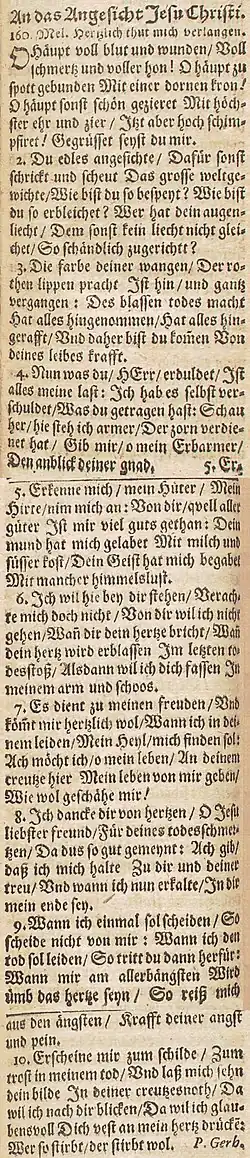 An das Angesicht Jesu Christi.
160. Mel. Hertzlich thut mich verlangen.
O Häupt voll blut und wunden/ Voll
schmertz und voller hon! O häupt zu
spott gebunden Mit einer dornen kron!
O häupt sonst schön gezieret Mit höch-
ster ehr und zier / Itzt aber hoch schim-
pfiret! Gegrüsset seyst du mir.
2. Du edles angesichte/ Dafür sonst
schrickt und scheut Das grosse weltge-
wichte/ Wie bist du so bespeyt? Wie bist
du so erbleichet? Wer hat dein augen-
liecht/ Dem sonst kein liecht nicht glei-
chet/ So schändlich zugericht?
3. Die farbe deiner wangen/ Der ro-
then lippen pracht Ist hin/ und gantz
vergangen: Des blassen todes macht
Hat alles hingenommen/ Hat alles hin-
gerafft/ Vnd daher bist du kom̃en Von
deines leibes krafft.
4. Nun was du/ HErr/ erduldet/ Ist
alles meine last: Ich hab es selbst ver-
schuldet/ Was du getragen hast: Schau
her/ hie steh ich armer/ Der zorn verdie-
net hat / Gib mir/ o mein Erbarmer/
Den anblick deiner gnad. 5. Er-
5. Erkenne mich/ mein Hüter/ Mein
Hirte/ nim mich an: Von dir/ qvell aller
güter Ist mir viel guts gethan: Dein
mund hat mich gelabet Mit milch und
süsser kost/ Dein Geist hat mich begabet
Mit mancher himmelslust.
6. Ich wil hie bey dir stehen/ Verach-
te mich doch nicht/ Von dir wil ich nicht
gehen/ Wañ dir dein hertze bricht/ Wañ
dein hertz wird erblassen Im letzten to-
desstoß/ Alsdann wil ich dich fassen In
meinem arm und schoos.
7. Es dient zu meinen freuden/ Vnd
köm̃t mir hertzlich wol/ Wann ich in dei-
nem leiden/ Mein Heyl/ mich finden sol:
Ach möcht ich/ o mein leben/ An deinem
creutze hier Mein leben von mir geben/
Wie wol geschähe mir!
8. Ich dancke dir von hertzen / O Jesu
liebster freund/ Für deines todesschmer-
tzen/ Da dus so gut gemeynt: Ach gib/
daß ich mich halte Zu dir und deiner
treu/ Vnd wann ich nun erkalte/ In dir
mein ende sey.
9. Wann ich einmal sol scheiden/ So
scheide nicht von mir: Wann ich den
tod sol leiden/ So tritt du dann herfür:
Wann mir am allerbängsten Wird
ümb das hertze seyn / So reiß mich
aus den ängsten / Krafft deiner angst
und pein.
10. Erscheine mir zum schilde / Zum
trost in meinem tod/ Vnd laß mich sehn
dein bilde In deiner creutzesnoth/ Da
wil ich nach dir blicken/ Da wil ich glau-
bensvoll Dich vest an mein hertz drücken:
Wer so stirbt/ der stirbt wol. P. Gerh.